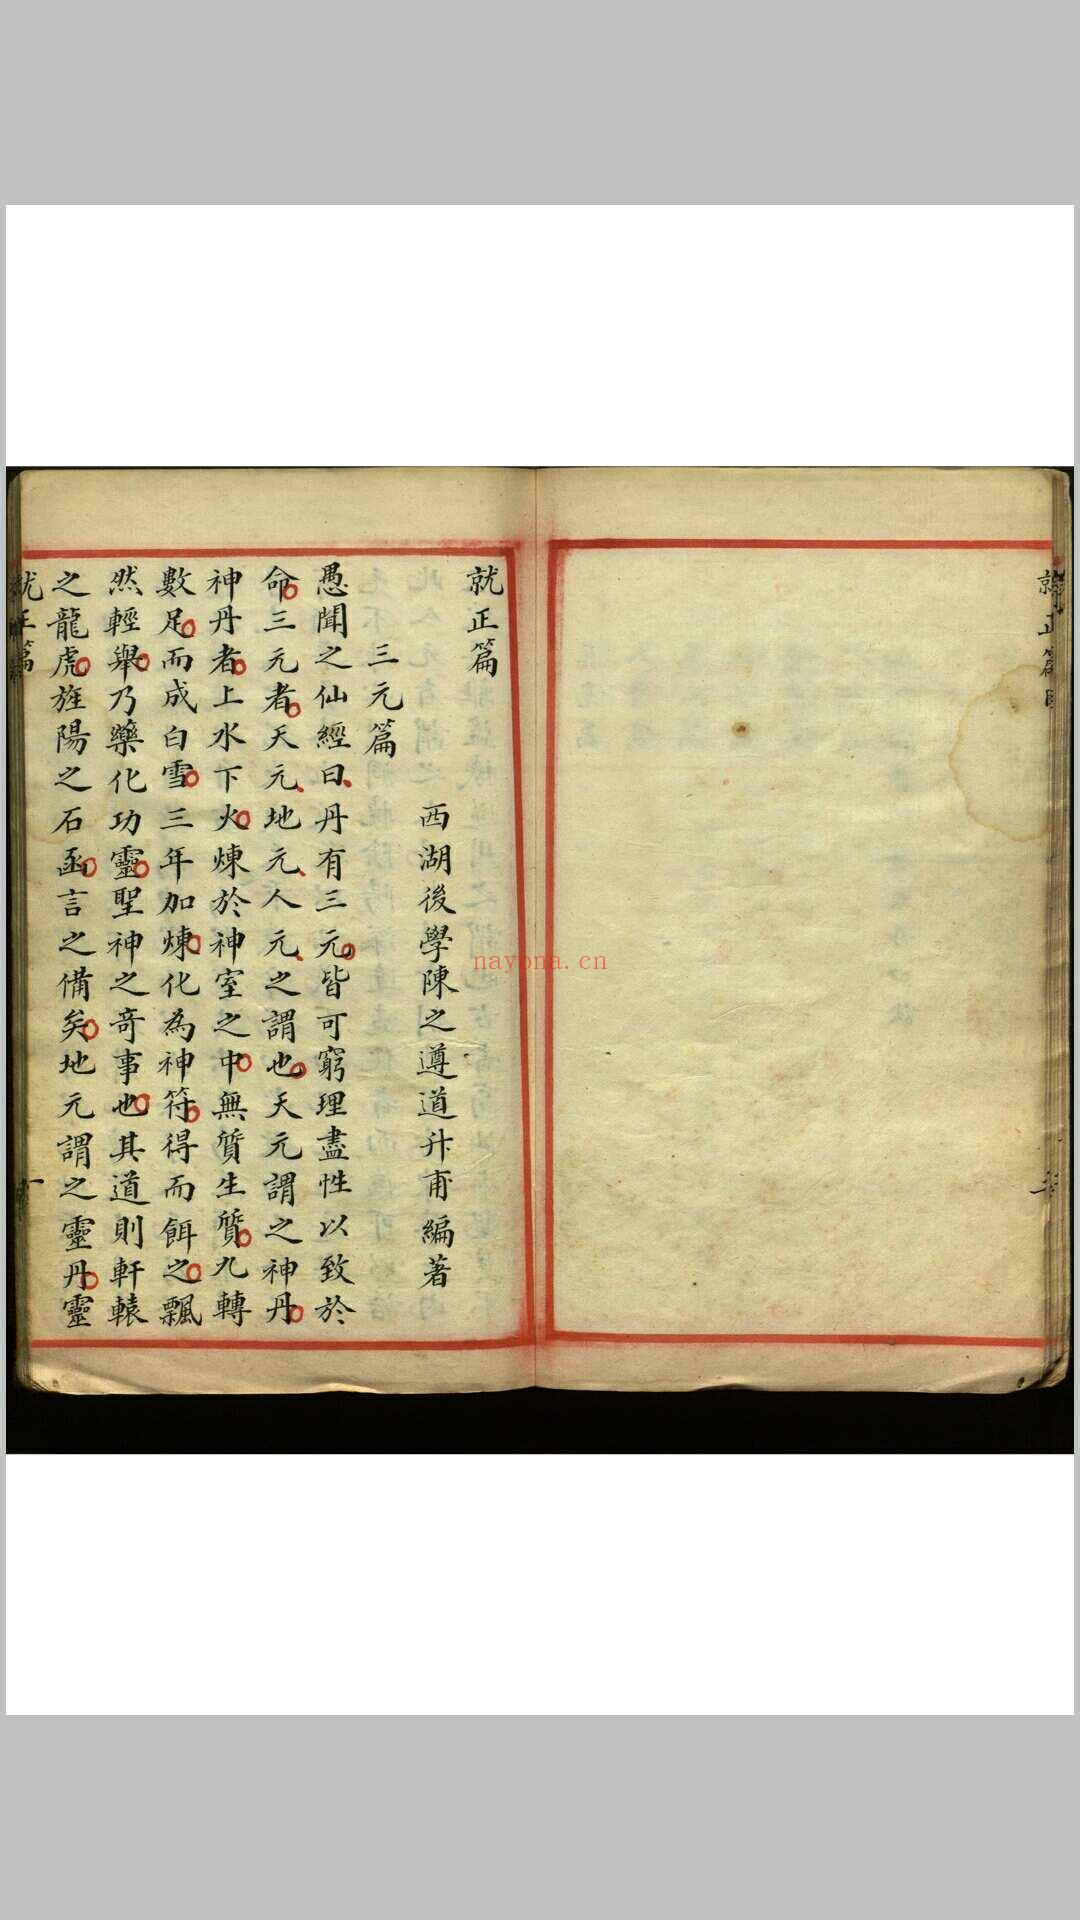 就正篇
西湖後學陳之遵道升甫編著
三元篇
愚聞之仙經曰丹有三元皆可窮理盡性以致於
命三元者天元地元人元之謂也天元謂之神丹
神丹者上水下火煉於神室之中無質生質九轉
數足而成白雪三年加煉化為神符得而餌之飄
然輕舉乃藥化功靈聖神之竒事也其道則軒轅
之龍虎旌陽之石函言之備矣地元謂之靈丹靈
就正篇
一
nayona.cn